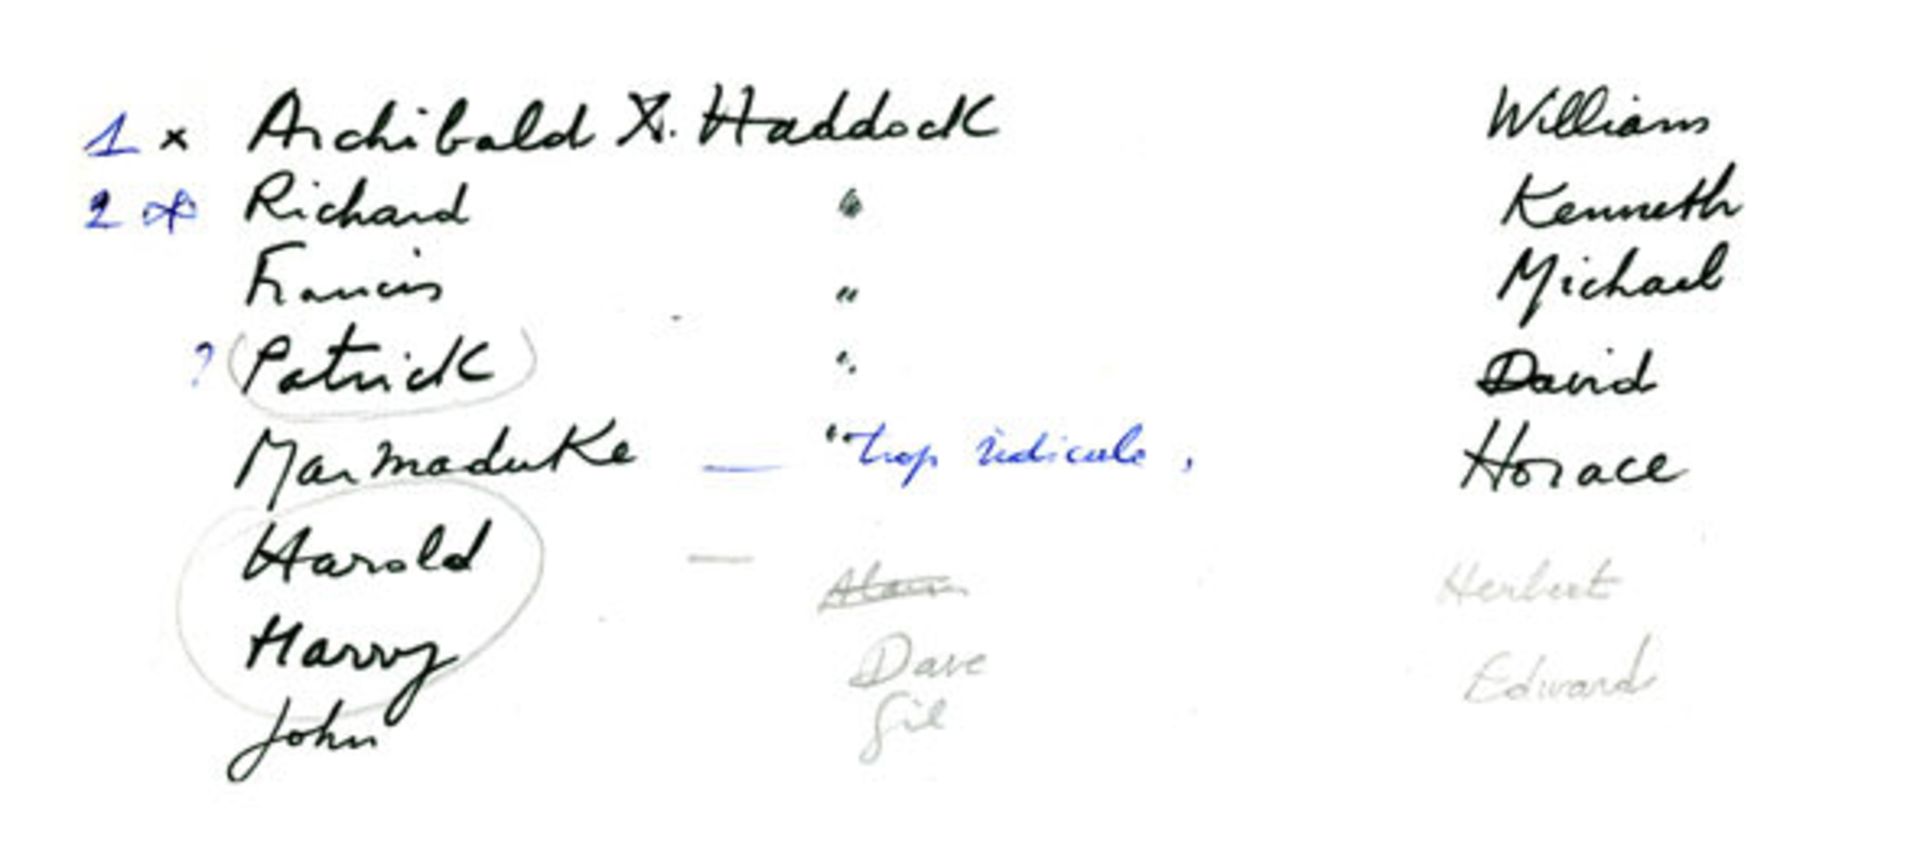 1 x Archibald X. Haddock William
2 x Richard " Kenneth
Francis " Michael
? (Patrick) " David
Marmaduke — " trop ridicule, Horace
Harold — Alain Herbert
Harry Dave Edward
John Gil